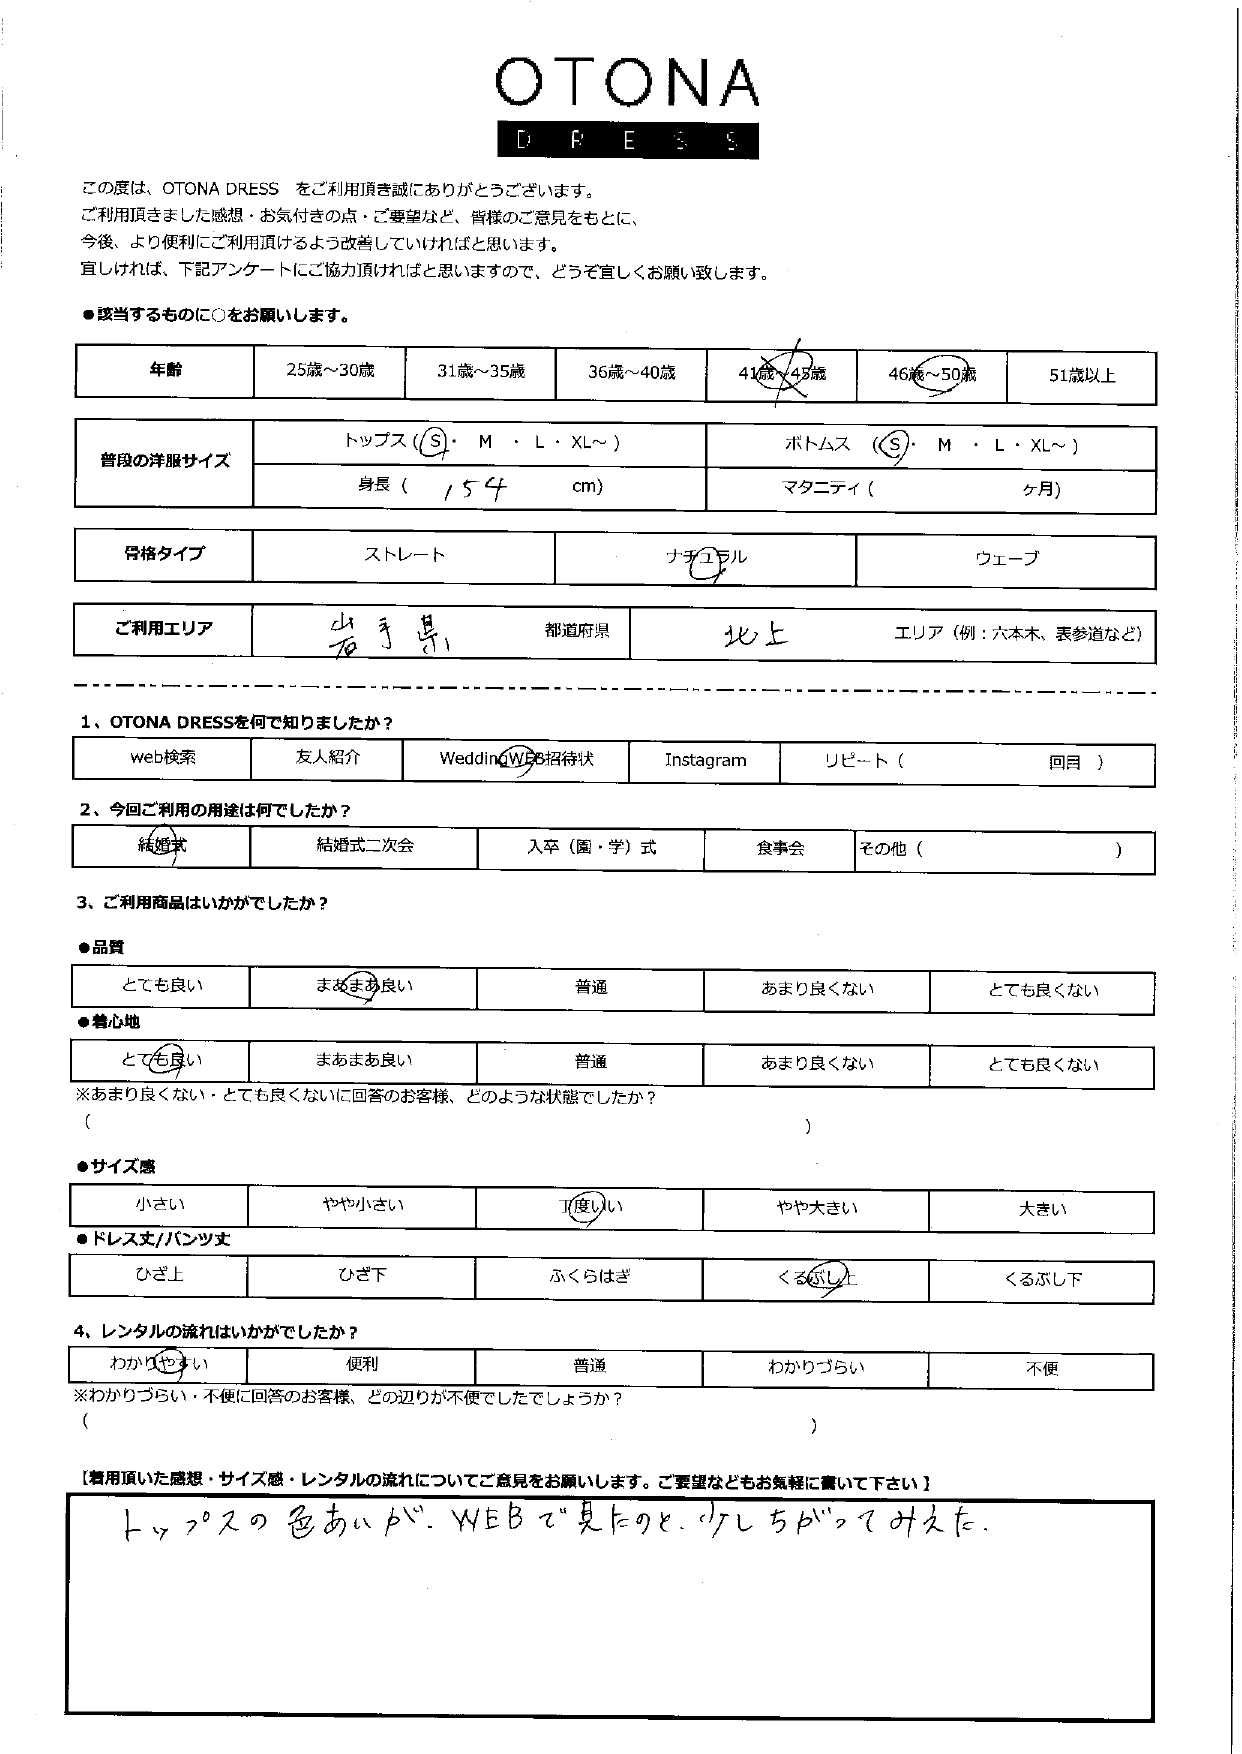 OTONA
DRESS
この度は、OTONA DRESS をご利用頂き誠にありがとうございます。
ご利用頂きました感想・お気付きの点・ご要望など、皆様のご意見をもとに、
今後、より便利にご利用頂けるよう改善していければと思います。
宜しければ、下記アンケートにご協力頂ければと思いますので、どうぞ宜しくお願い致します。
●該当するものに○をお願いします。
年齢 25歳～30歳 31歳～35歳 36歳～40歳 41歳～45歳 46歳～50歳 51歳以上
普段の洋服サイズ
トップス (S・ M ・ L ・ XL～ ) ボトムス (S・ M ・ L ・ XL～ )
身長 ( 154 cm) マタニティ ( ヶ月)
骨格タイプ ストレート ナチュラル ウェーブ
ご利用エリア 岩手県 都道府県 北上 エリア（例：六本木、表参道など）
1、OTONA DRESSを何で知りましたか？
web検索 友人紹介 WeddingWEB招待状 Instagram リピート ( 回目 )
2、今回ご利用の用途は何でしたか？
結婚式 結婚式二次会 入卒（園・学）式 食事会 その他 ( )
3、ご利用商品はいかがでしたか？
●品質
とても良い まあまあ良い 普通 あまり良くない とても良くない
●着心地
とても良い まあまあ良い 普通 あまり良くない とても良くない
※あまり良くない・とても良くないに回答のお客様、どのような状態でしたか？
( )
●サイズ感
小さい やや小さい 丁度いい やや大きい 大きい
●ドレス丈/パンツ丈
ひざ上 ひざ下 ふくらはぎ くるぶし上 くるぶし下
4、レンタルの流れはいかがでしたか？
わかりやすい 便利 普通 わかりづらい 不便
※わかりづらい・不便に回答のお客様、どの辺りが不便でしたでしょうか？
( )
【着用頂いた感想・サイズ感・レンタルの流れについてご意見をお願いします。ご要望などもお気軽に書いて下さい】
トップスの色あいが、WEBで見たのと、少しちがってみえた。